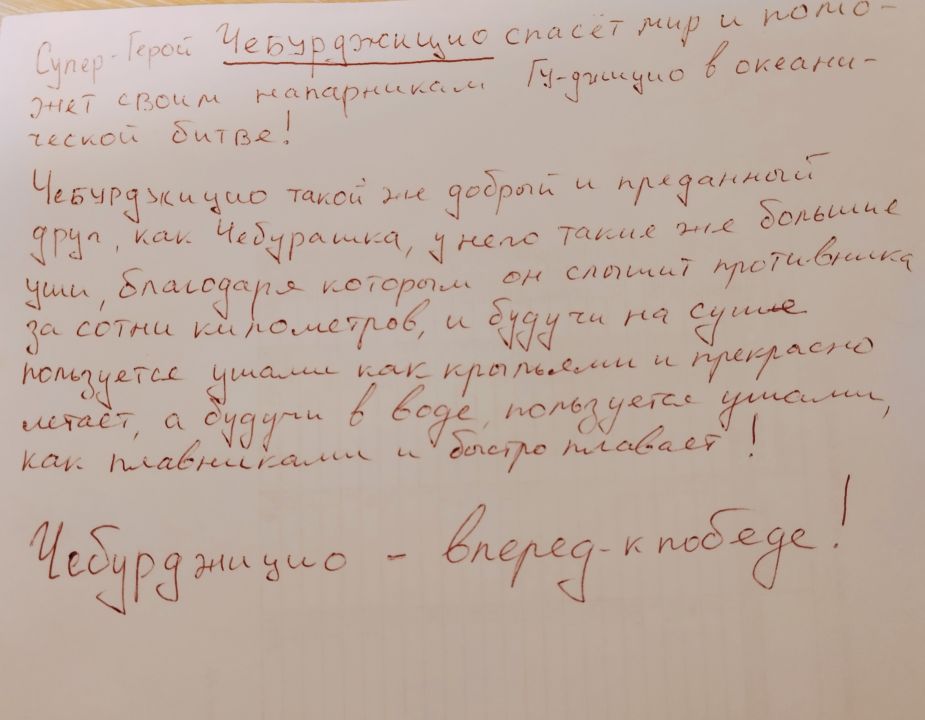 Супер-Герой Чебурджицио спасёт мир и помо-
жет своим напарникам Гу-джицио в океани-
ческой битве!
Чебурджицио такой же добрый и преданный
друг, как Чебурашка, у него такие же большие
уши, благодаря которым он слышит противника
за сотни километров, и будучи на суше
пользуется ушами как крыльями и прекрасно
летает, а будучи в воде, пользуется ушами,
как плавниками и быстро плавает!
Чебурджицио - вперед-к победе!